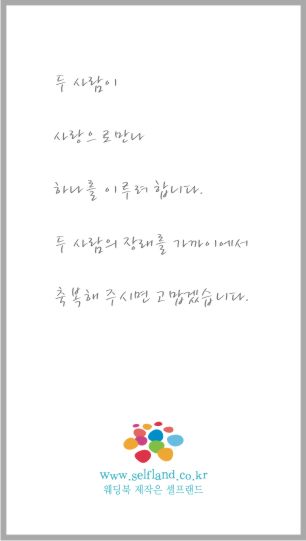 두 사람이
사랑으로만나
하나를 이루려 합니다.
두 사람의 장래를 가까이에서
축복해 주시면 고맙겠습니다.
www.selfland.co.kr
웨딩북 제작은 셀프랜드